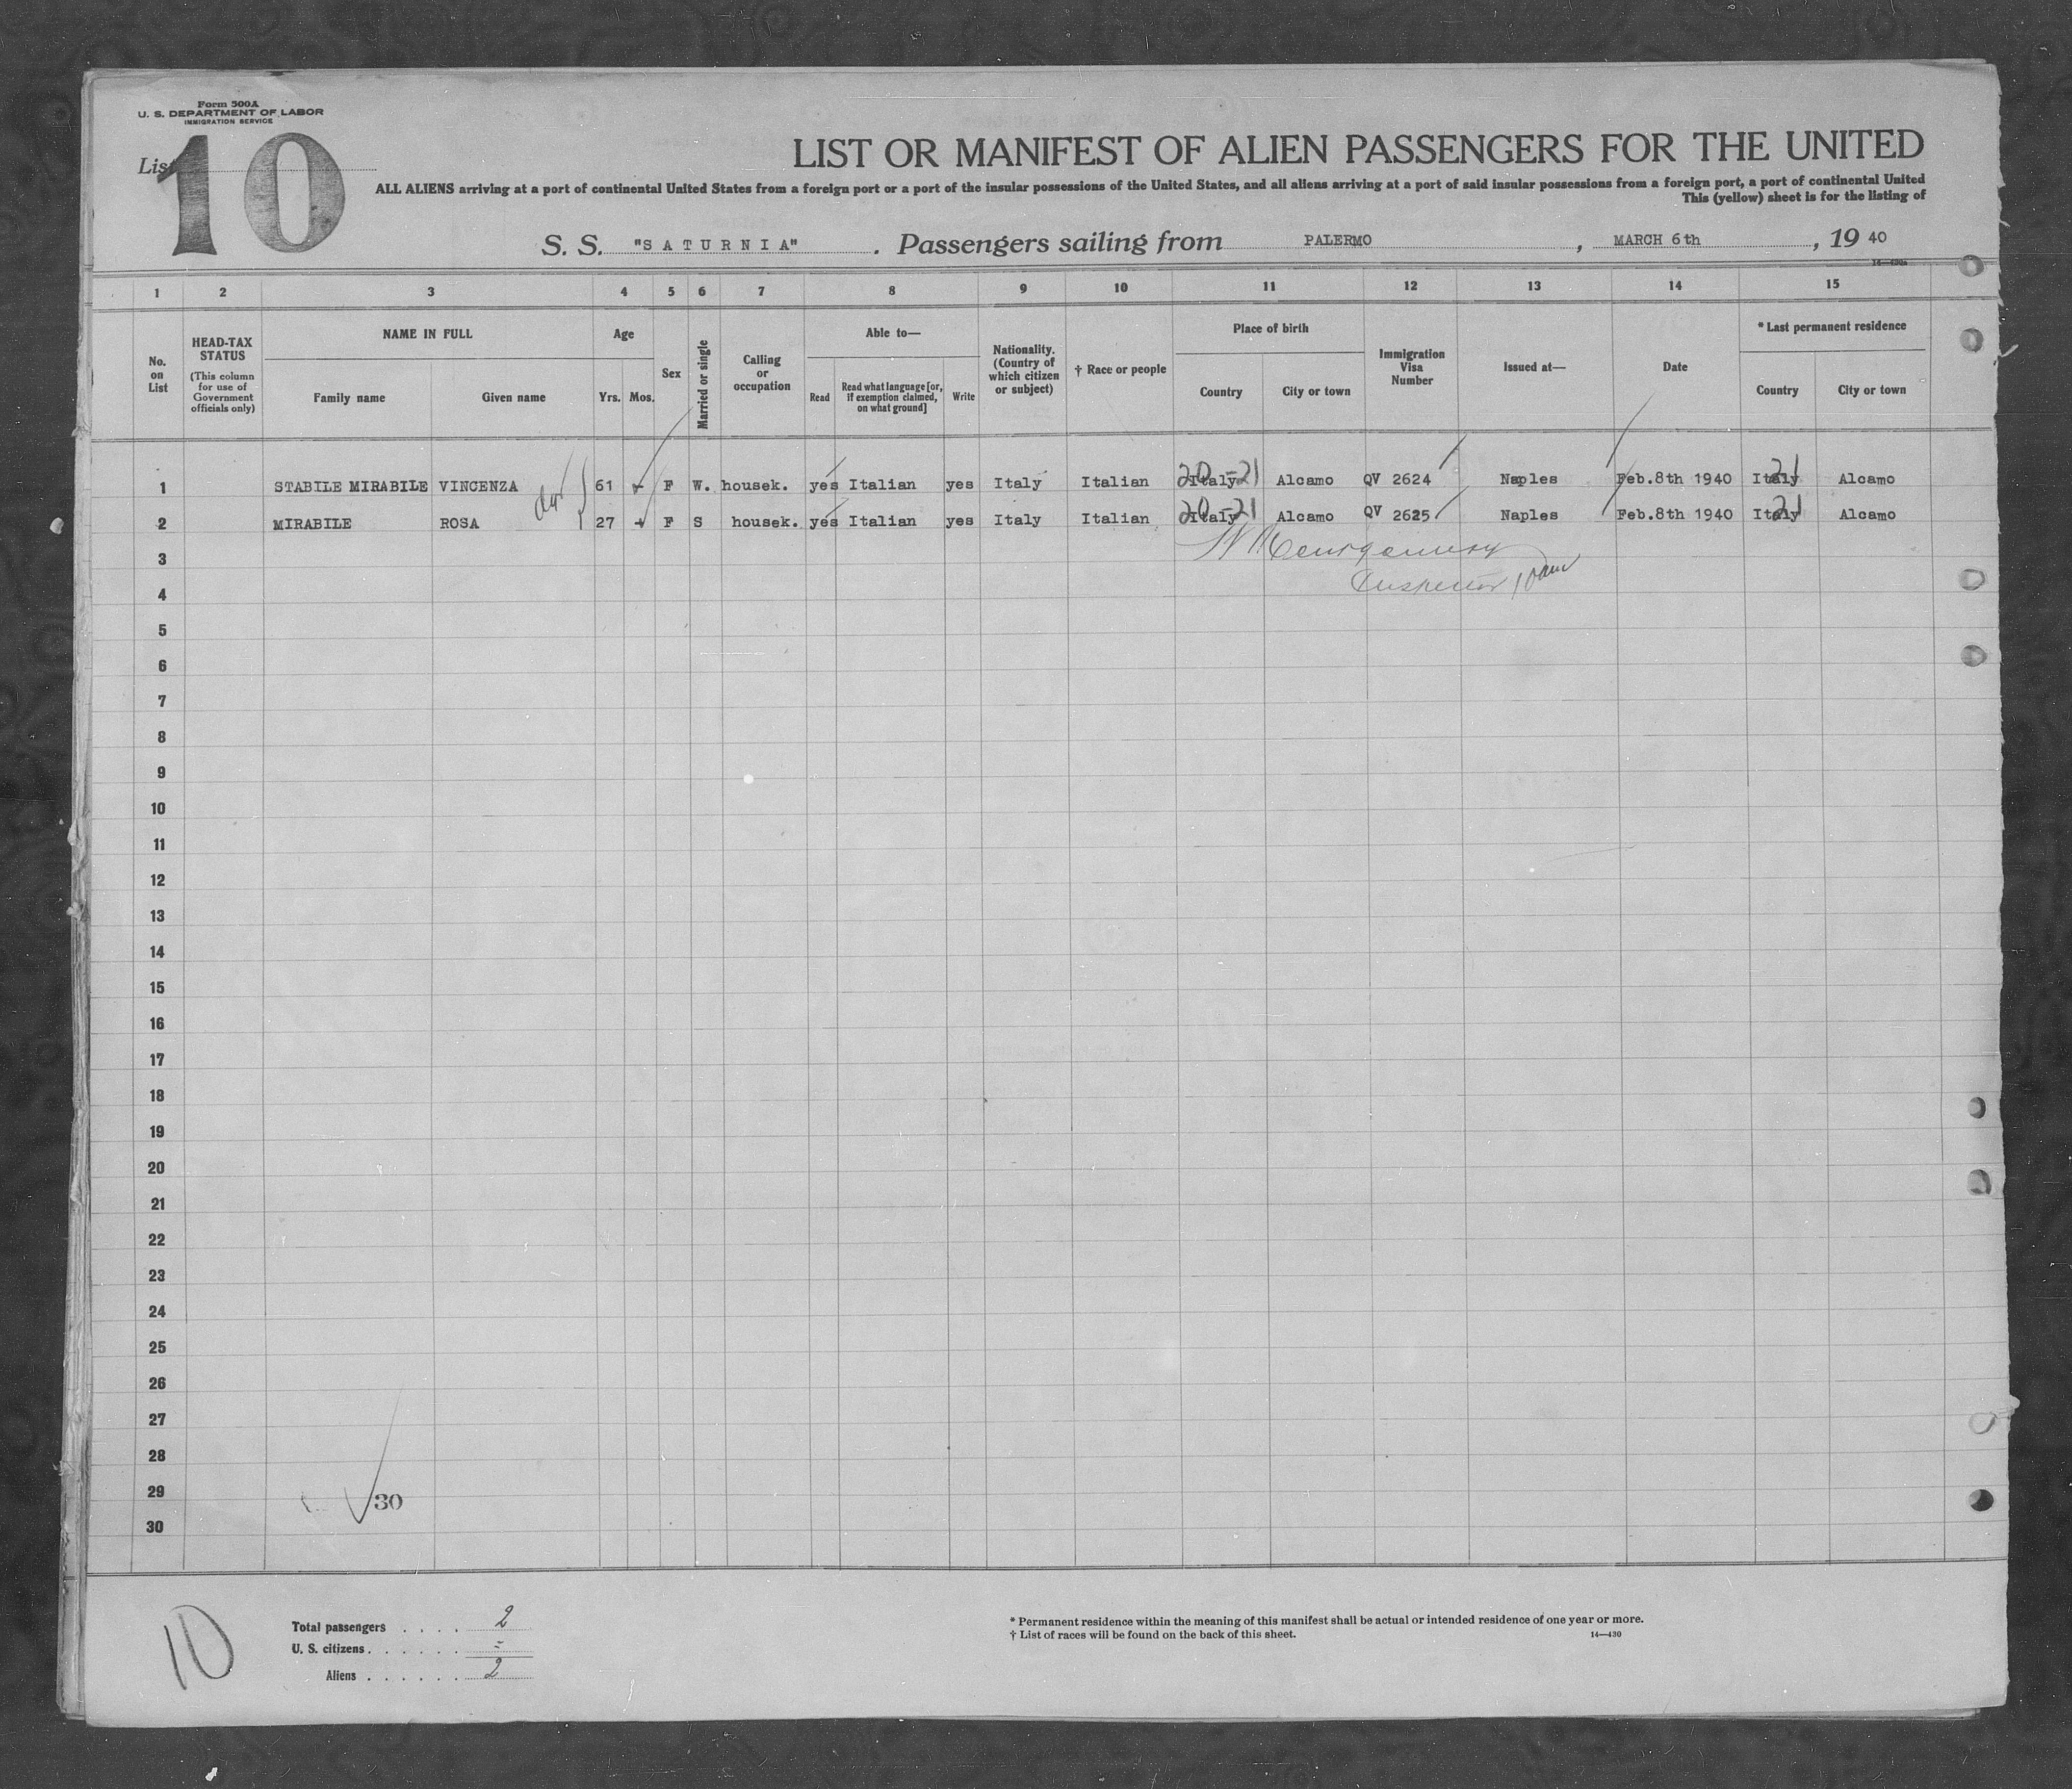 Form 500A
U. S. DEPARTMENT OF LABOR
IMMIGRATION SERVICE
List 10
LIST OR MANIFEST OF ALIEN PASSENGERS FOR THE UNITED
ALL ALIENS arriving at a port of continental United States from a foreign port or a port of the insular possessions of the United States, and all aliens arriving at a port of said insular possessions from a foreign port, a port of continental United
This (yellow) sheet is for the listing of
S. S. "SATURNIA". Passengers sailing from PALERMO, MARCH 6th, 1940
1 2 3 4 5 6 7 8 9 10 11 12 13 14 15
No. on List
HEAD-TAX STATUS (This column for use of Government officials only)
NAME IN FULL
Family name Given name
Age
Yrs. Mos.
Sex
Married or single
Calling or occupation
Able to—
Read Read what language [or, if exemption claimed, on what ground] Write
Nationality. (Country of which citizen or subject)
† Race or people
Place of birth
Country City or town
Immigration Visa Number
Issued at—
Date
* Last permanent residence
Country City or town
1 STABILE MIRABILE VINCENZA 61 F W. housek. yes Italian yes Italy Italian Italy 20-21 Alcamo QV 2624 Naples Feb.8th 1940 Italy 21 Alcamo
2 MIRABILE ROSA 27 F S housek. yes Italian yes Italy Italian Italy 20-21 Alcamo QV 2625 Naples Feb.8th 1940 Italy 21 Alcamo
3 Montgomery
4 Inspector
5
6
7
8
9
10
11
12
13
14
15
16
17
18
19
20
21
22
23
24
25
26
27
28
29 30
30
10
Total passengers . . . . 2
U. S. citizens . . . . . . -
Aliens . . . . . . 2
* Permanent residence within the meaning of this manifest shall be actual or intended residence of one year or more.
† List of races will be found on the back of this sheet. 14—430